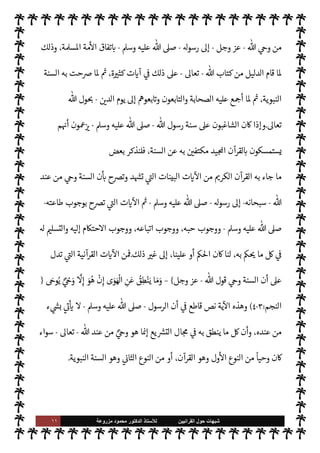 من وحي الله - عز وجل - إلى رسوله - صلى الله عليه وسلم - باتفاق الأمة المسلمة، وذلك
لما قام الدليل من كتاب الله - تعالى - على ذلك في آيات كثيرة، ثم لما صرحت به السنة
النبوية، ثم لما أجمع عليه الصحابة والتابعون وتابعوهم إلى يوم الدين - بحول الله
تعالى.وإذا كان الشاغبون على سنة رسول الله - صلى الله عليه وسلم - يزعمون أنهم
يستمسكون بالقرآن المجيد مكتفين به عن السنة، فلنذكر بعض
ما جاء به القرآن الكريم من الآيات البينات التي تشهد وتصرح بأن السنة وحي من عند
الله - سبحانه- إلى رسوله - صلى الله عليه وسلم - ثم الآيات التي تصرح بوجوب طاعته-
صلى الله عليه وسلم - ووجوب حبه، ووجوب اتباعه، ووجوب الاحتكام إليه والتسليم له
في كل ما يحكم به، لنا كان الحكم أو علينا، إلى غير ذلك.فمن الآيات القرآنية التي تدل
على أن السنة وحي قول الله - عز وجل) – وَمَا يَنْطِقُ عَنِ الْهَوَى إِنْ هُوَ إِلَّا وَحْيٌ يُوحَى (
النجم:٣،٤) وهذه الآية نص قاطع في أن الرسول - صلى الله عليه وسلم - لا يأتي بشيء
من عنده، وأن كل ما ينطق به في مجال التشريع إنما هو وحيٌ من عند الله - تعالى - سواء
كان وحياً من النوع الأول وهو القرآن، أو من النوع الثاني وهو السنة النبوية.
شبهات حول القرانيين للأستاذ الدكتور محمود مزروعة ١١